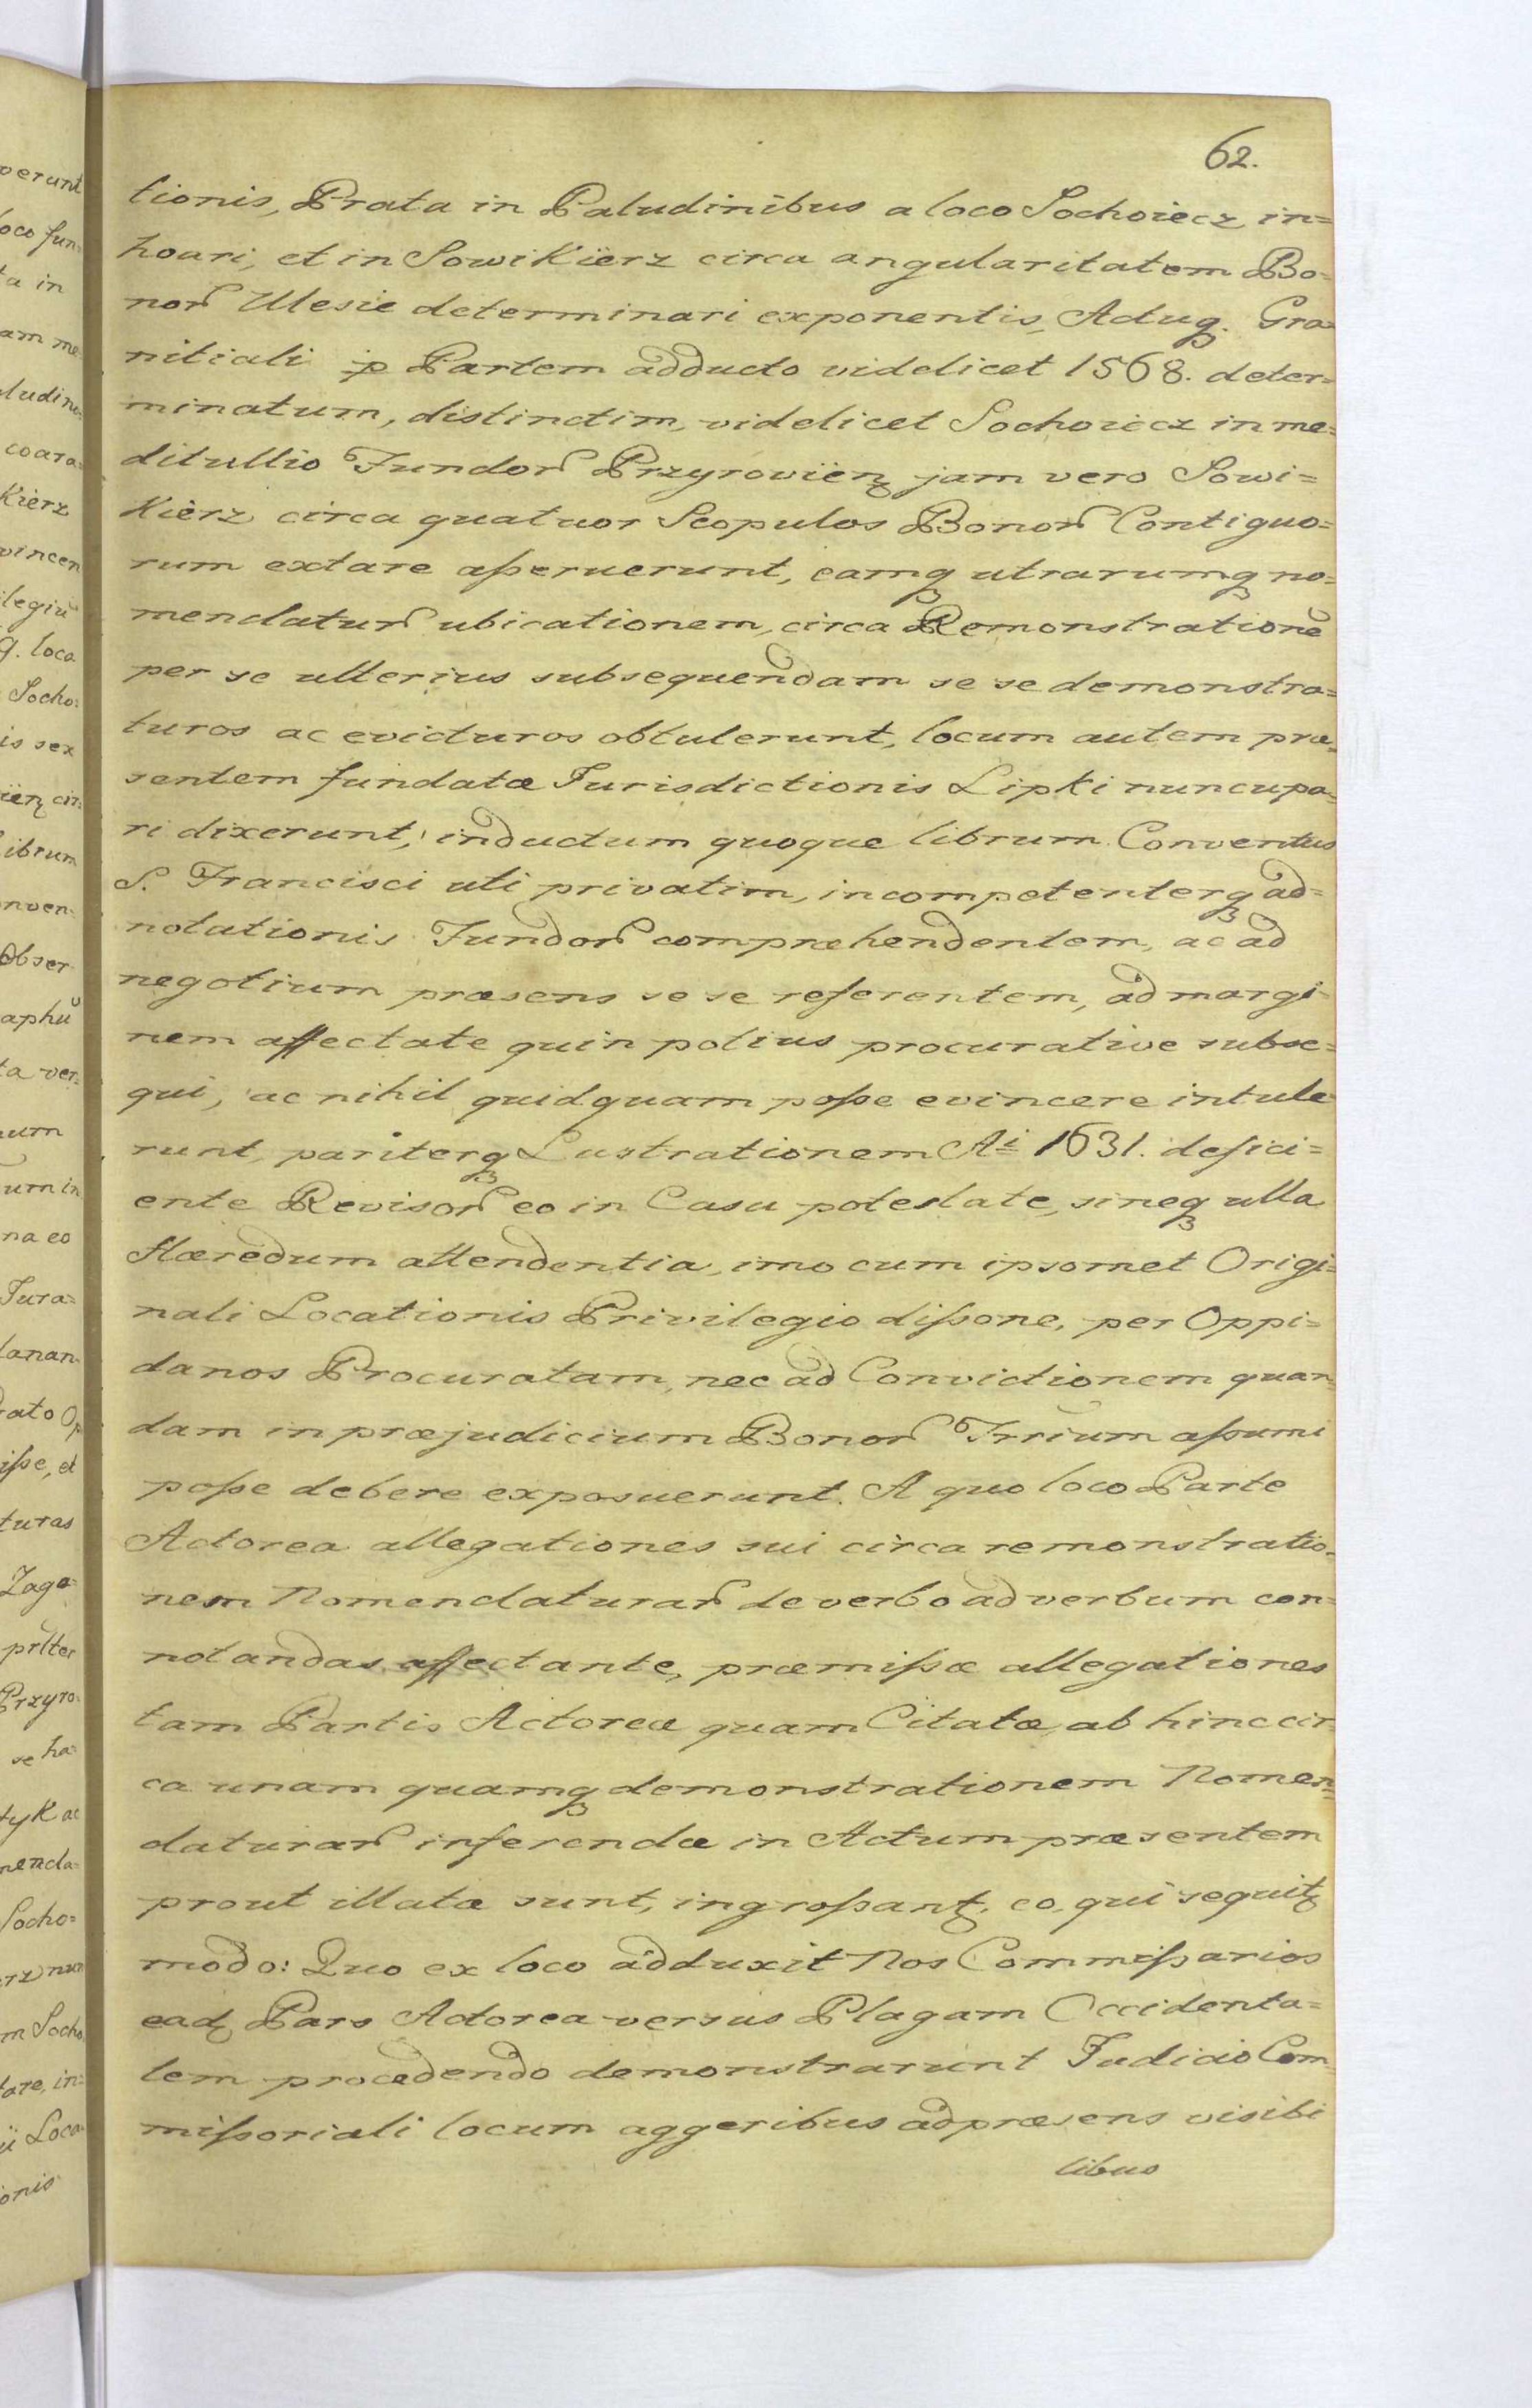 62.
tionis, Prata in Paludinibus a loco Sochoiecz in=
hoari, et in Sowikïerz circa angularitatem Bo=
nor Ulesie determinari exponentis, Actuq. Gra=
nitiali p Partem adducto videlicet 1568. deter=
minatum, distinctim, videlicet Sochoiecz in me=
ditullio Fundor Przyrovïenz jam vero Sowi=
Kïerz circa quatuor Scopulos Bonor Contiguo=
rum extare aßeruerunt, eamq utrarumq no=
menclatur ubicationem, circa Remonstrationē
per se ulterius subsequendam se se demonstra=
turos ac evicturos obtulerunt, locum autem præ=
sentem fundatæ Jurisdictionis Lipki nuncupa=
ri dixerunt, inductum quoque librum Conventus
S. Francisci uti privatim, incompetenterq ad=
notationis Fundor compræhendentem, ac ad
negotium præsens se se referentem, ad margi=
nem affectate quin potius procurative subse=
qui, ac nihil quidquam poße evincere intule
runt, pariterq Lustrationem Ai 1631. defici=
ente Revisor eo in Casu potestate, sineq ulla
Hæredum attendentia, imo cum ipsomet Origi=
nali Locationis Privilegio dißone, per Oppi=
danos Procuratam, nec ad Convictionem quan=
dam in præjudicium Bonor Trrium aßumi
poße debere exposuerunt. A quo loco Parte
Actorea allegationes sui circa remonstratio=
nem Nomenclaturar de verbo ad verbum con=
notandas affectante, præmißæ allegationes
tam Partis Actoreæ quam Citatæ, ab hinc cir=
ca unam quamq demonstrationem Nomen=
claturar inferendæ in Actum præsentem
prout illatæ sunt, ingroßantz, eo, qui sequitz
modo: Quo ex loco adduxit Nos Commißarios
eadz Pars Actorea versus Plagam Occidenta=
lem procedendo demonstrarunt Judicio Com=
mißoriali locum aggeribus ad præsens visibi
libus